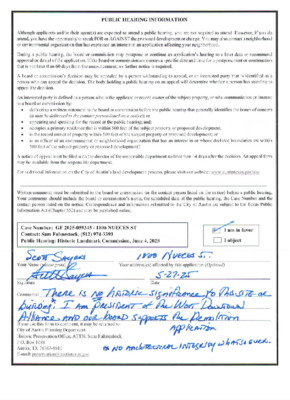 PUBLIC HEARING INFORMATION
Although applicants and/or their agent(s) are expected to attend a public hearing, you are not required to attend. However, if you do
attend, you have the opportunity to speak FOR or AGAINST the proposed development or change. You may also contact a neighborhood
or environmental organization that has expressed an interest in an application affecting your neighborhood.
During a public hearing, the board or commission may postpone or continue an application's hearing to a later date or recommend
approval or denial of the application. If the board or commission announces a specific date and time for a postponement or continuation
that is not later than 60 days from the announcement, no further notice is required.
A board or commission's decision may be appealed by a person with standing to appeal, or an interested party that is identified as a
person who can appeal the decision. The body holding a public hearing on an appeal will determine whether a person has standing to
appeal the decision.
An interested party is defined as a person who is the applicant or record owner of the subject property, or who communicates an interest
to a board or commission by:
• delivering a written statement to the board or commission before the public hearing that generally identifies the issues of concern
(it may be delivered to the contact person listed on a notice); or
• appearing and speaking for the record at the public hearing; and:
• occupies a primary residence that is within 500 feet of the subject property or proposed development;
• is the record owner of property within 500 feet of the subject property or proposed development; or
• is an officer of an environmental or neighborhood organization that has an interest in or whose declared boundaries are within
500 feet of the subject property or proposed development.
A notice of appeal must be filed with the director of the responsible department no later than 14 days after the decision. An appeal form
may be available from the responsible department.
For additional information on the City of Austin's land development process, please visit our website: www.austintexas.gov
Written comments must be submitted to the board or commission (or the contact person listed on the notice) before a public hearing.
Your comments should include the board or commission's name, the scheduled date of the public hearing, the Case Number and the
contact person listed on the notice. Correspondence and information submitted to the City of Austin are subject to the Texas Public
Information Act (Chapter 552) and may be published online.
Case Number: - NUECES ST
Contact: Sam Fahnestock, (512) 974-3393
Public Hearing: Historic Landmark Commission, June 4, 2025
I am in favor
I object
Scott Sayers
Nueces St.
Your Name (please print)
Your address(es) affected by this application (Optional)
5-27-25
Signature
Date
Comments: There is no historic significance to this site or
building. I am president of the West Downtown
Alliance and our board supports the demolition
application
If you use this form to comment, it may be returned to:
City of Austin Planning Department
Historic Preservation Office, ATTN: Sam Fahnestock
P.O. Box 1088
Austin, TX 78767
no architectural integrity whatsoever.